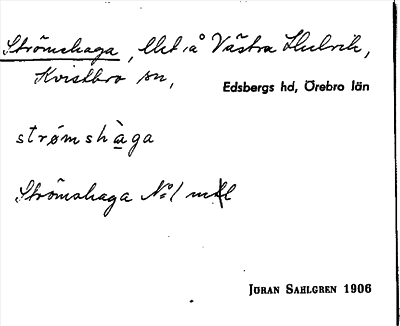 Strömshaga, lht å Västra Hulvik,
Kvistbro sn,
Edsbergs hd, Örebro län
strømshàga
Strömshaga No 1 mtl
JÖRAN SAHLGREN 1906